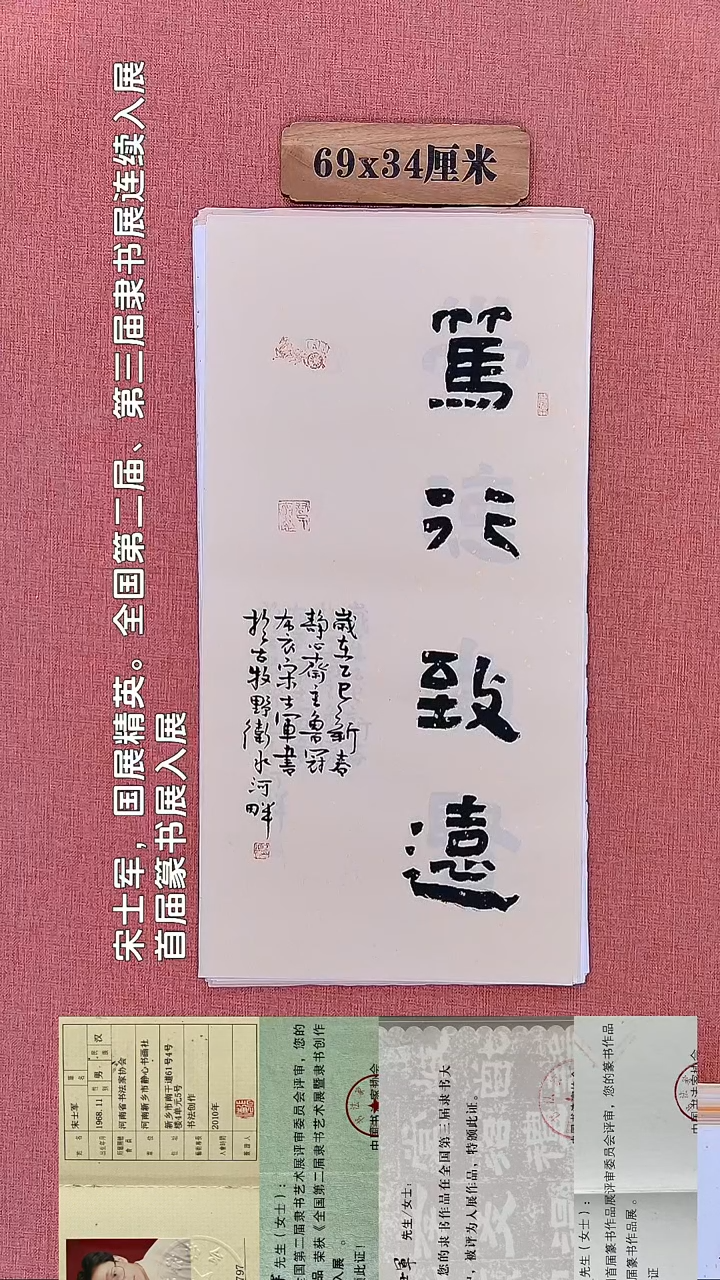 69x34厘米
宋士军，国展精英。全国第二届、第三届隶书展连续入展
首届篆书展入展
篤
行
致
遠
歲在乙巳年新春
静心齋主魯冠
布衣宋士軍書
於古牧野衛水河畔
宋士军
1968.11
男
汉
河南省书法家协会
河南新乡市静心书画社
新乡市南干道61号4号
楼4单元5号
书法创作
2010年
797
先生（女士）：
全国第二届隶书艺术展评审委员会评审，您的
荣获《全国第二届隶书艺术展暨隶书创作
入展 。
此证！
先生/女士：
您的隶书作品在全国第三届隶书大
，被评为入展作品，特颁此证。
先生（女士）：
首届篆书作品展评审委员会评审，您的篆书作品
书作品展 。
证